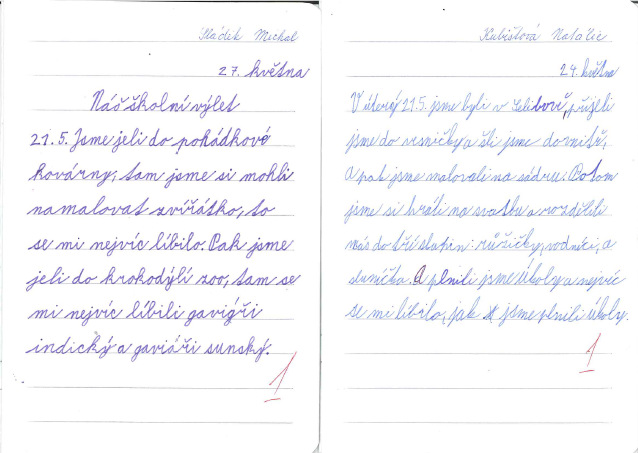 Sládek Michal
27. května
Náš školní výlet
21.5. Jsme jeli do pohádkové
kovárny, tam jsme si mohli
namalovat zvířátko, to
se mi nejvíc líbilo. Pak jsme
jeli do krokodýlí zoo, tam se
mi nejvíc líbili gavigři
indický a gaviáři sunský.
1
Kubištová Natálie
29. května
V úterý 21.5. jsme byli v Seliboři, přijeli
jsme do vesničky a šli jsme dovnitř,
a pak jsme malovali na sádru. Potom
jsme si hráli na svatbu a rozdělili
nás do tří skupin: růžičky, vodníci, a
sluníčka. A plnili jsme úkoly a nejvíc
se mi líbilo, jak jsme plnili úkoly.
1